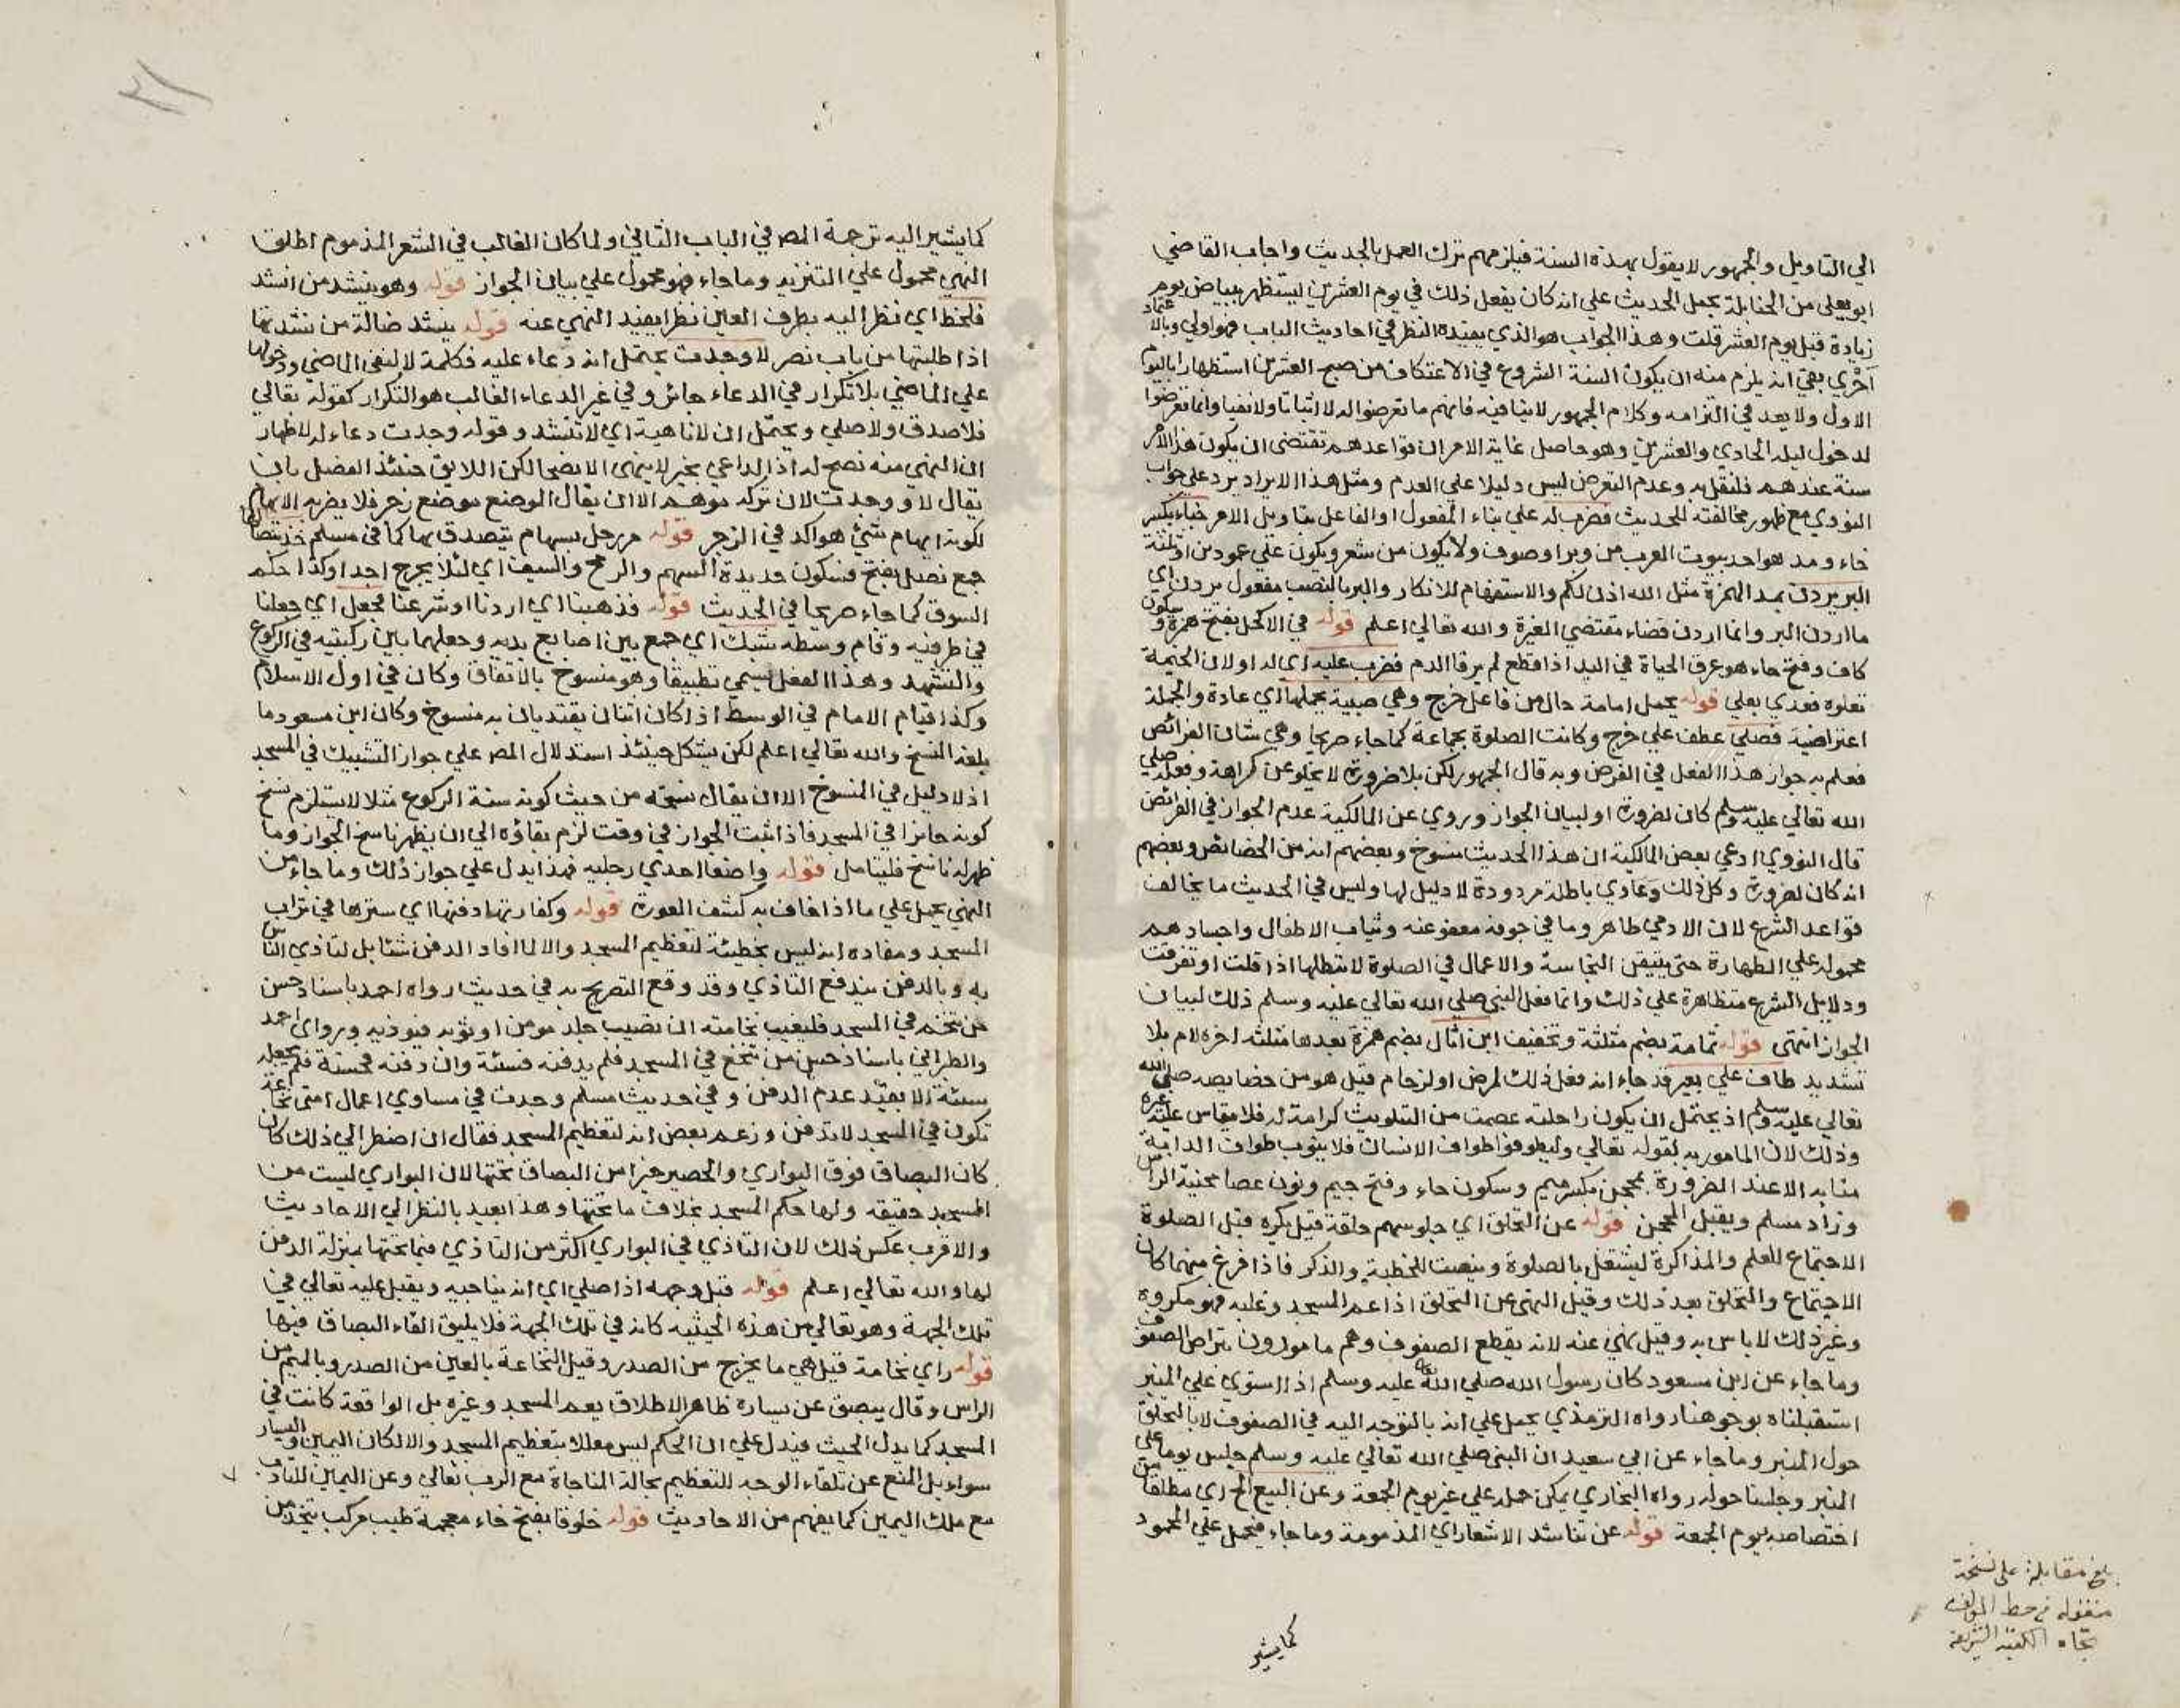 الي التاويل والجمهور لا يقول بهذه السنة فيلزمهم ترك العمل بالحديث واجاب القاضي
ابو يعلي من الحنابلة بحمل الحديث علي انه كان يفعل ذلك في يوم العشرين ليستظهر ببياض يوم
زيادة قبل يوم العشر قلت وهذا الجواب هو الذي يفيده النظر في احاديث الباب فهو اولي وبالاعتماد
احري بقي انه يلزم منه ان يكون السنة الشروع في الاعتكاف من صبح العشرين استظهارا باليوم
الاول ولا يعد في التزامه وكلام الجمهور لا ينافيه فانهم ما تعرضوا له لا اثباتا ولا نفيا وانما تعرضوا
لدخول ليلة الحادي والعشرين وهو حاصل غاية الامر ان قواعدهم تقتضي ان يكون هذا الامر
سنة عندهم فلنقل به وعدم التعرض ليس دليلا علي العدم ومثل هذا الايراد يرد علي جواب
النووي مع ظهور مخالفته للحديث فضرب له علي بناء المفعول او الفاعل بتاويل الامر خباء بكسر
خاء ومد هو احد بيوت العرب من وبر او صوف ولا يكون من شعر ويكون علي عمودين او ثلثة
البر يردن بمد الهمزة مثل الله اذن لكم والاستفهام للانكار والبر بالنصب مفعول يردن اي
ما اردن البر وانما اردن قضاء مقتضي الغيرة والله تعالي اعلم قوله في الاكحل بفتح همزة وسكون
كاف وفتح حاء هو عرق الحياة في اليد اذا قطع لم يرقا الدم فضرب عليه اي له او لان الخيمة
تعلوه فعدي بعلي قوله يحمل امامة حال من فاعل خرج وهي صبية يحملها اي عادة والجملة
اعتراضية فصلي عطف علي خرج وكانت الصلوة بجماعة كما جاء صريحا وهي شان الفرائض
فعلم به جواز هذا الفعل في الفرض وبه قال الجمهور لكن بلا ضرورة لا يخلو عن كراهة وفعله صلي
الله تعالي عليه وسلم كان لضرورة او لبيان الجواز وروي عن المالكية عدم الجواز في الفرائض
قال النووي ادعي بعض المالكية ان هذا الحديث منسوخ وبعضهم انه من الخصائص وبعضهم
انه كان لضرورة وكل ذلك دعاوي باطلة مردودة لا دليل لها وليس في الحديث ما يخالف
قواعد الشرع لان الادمي طاهر وما في جوفه معفو عنه وثياب الاطفال واجسادهم
محمولة علي الطهارة حتي يتيقن النجاسة والاعمال في الصلوة لا تبطلها اذا قلت او تفرقت
ودلايل الشرع متظاهرة علي ذلك وانما فعل النبي صلي الله تعالي عليه وسلم ذلك لبيان
الجواز انتهي قوله ثمامة بضم مثلثة وتخفيف ابن اثال بضم همزة بعدها مثلثة اخره لام بلا
تشديد طاف علي بعير قد جاء انه فعل ذلك لمرض او لزحام قيل هو من خصايصه صلي الله
تعالي عليه وسلم اذ يحتمل ان يكون راحلته عصمت من التلويث كرامة له فلا يقاس عليه غيره
وذلك لان المامور به لقوله تعالي وليطوفوا طواف الانسان فلا ينوب طواف الدابة
منابه الا عند الضرورة بمحجن بكسر ميم وسكون حاء وفتح جيم ونون عصا محنية الراس
وزاد مسلم ويقبل المحجن قوله عن التحلق اي جلوسهم حلقة قيل يكره قبل الصلوة
الاجتماع للعلم والمذاكرة ليشتغل بالصلوة وينصت للخطبة والذكر فاذا فرغ منهما كان
الاجتماع والتحلق بعد ذلك وقيل النهي عن التحلق اذا عم المسجد وغلبه فهو مكروه
وغير ذلك لا باس به وقيل نهي عنه لانه يقطع الصفوف وهم مامورون بتراص الصفوف
وما جاء عن ابن مسعود كان رسول الله صلي الله عليه وسلم اذا استوي علي المنبر
استقبلناه بوجوهنا رواه الترمذي يحمل علي انه بالتوجه اليه في الصفوف لا بالتحلق
حول المنبر وما جاء عن ابي سعيد ان النبي صلي الله تعالي عليه وسلم جلس يوما علي
المنبر وجلسنا حوله رواه البخاري يمكن حمله علي غير يوم الجمعة وعن البيع الخ اي مطلقا من
اختصاصه بيوم الجمعة قوله عن تناشد الاشعار اي المذمومة وما جاء فيحمل علي المحمود
كما يشير
بلغ مقابلة على نسخة
منقوله من خط المولف
تجاه الكعبة الشريفة
كما يشير اليه ترجمة المص في الباب الثاني ولما كان الغالب في الشعر المذموم اطلق
النهي محمول علي التنزيه وما جاء فهو محمول علي بيان الجواز قوله وهو ينشد من انشد
فلحظ اي نظر اليه بطرف العين نظرا يفيد النهي عنه قوله ينشد ضالة من نشدتها
اذا طلبتها من باب نصر لا وجدت يحتمل انه دعاء عليه فكلمة لا لنفي الماضي ودخولها
علي الماضي بلا تكرار في الدعاء جائز وفي غير الدعاء الغالب هو التكرار كقوله تعالي
فلا صدق ولا صلي ويحتمل ان لا ناهية اي لا تنشد وقوله وجدت دعاء له لاظهار
ان النهي منه نصح له اذ الداعي بخير لا ينهي الا نصحا لكن اللايق حينئذ الفصل بان
يقال لا ووجدت لان تركه موهم الا ان يقال الموضع موضع زجر فلا يضر به الايهام
لكونه ايهام شيء هو اكد في الزجر قوله مر رجل بسهام يتصدق بها كما في مسلم خذ بنصالها
جمع نصل بفتح فسكون حديدة السهم والرمح والسيف اي لئلا يجرح احدا وكذا حكم
السوق كما جاء صريحا في الحديث قوله فذهبنا اي اردنا او شرعنا فجعل اي جعلنا
في طرفيه وقام وسطه شبك اي جمع بين اصابع يديه وجعلهما بين ركبتيه في الركوع
والتشهد وهذا الفعل يسمي تطبيقا وهو منسوخ بالاتفاق وكان في اول الاسلام
وكذا قيام الامام في الوسط اذا كان اثنان يقتديان به منسوخ وكان ابن مسعود ما
بلغه النسخ والله تعالي اعلم لكن يشكل حينئذ استدلال المص علي جواز التشبيك في المسجد
اذ لا دليل في المنسوخ الا ان يقال نسخه من حيث كونه سنة الركوع مثلا لا يستلزم نسخ
كونه جائزا في المسجد فاذا ثبت الجواز في وقت لزم بقاؤه الي ان يظهر ناسخ الجواز وما
ظهر له ناسخ فليتامل قوله واضعا احدي رجليه فهذا يدل علي جواز ذلك وما جاء من
النهي يحمل علي ما اذا خاف به كشف العورة قوله وكفارتها دفنها اي سترها في تراب
المسجد ومفاده انه ليس بخطيئة لتعظيم المسجد والا لما افاد الدفن شئا بل لتاذي الناس
به وبالدفن يندفع التاذي وقد وقع التصريح به في حديث رواه احمد باسناد حسن
من تنخم في المسجد فليغيب نخامته ان تصيب جلد مومن او ثوبه فيوذيه وروي احمد
والطبراني باسناد حسن من تنخع في المسجد فلم يدفنه فسئة وان دفنه فحسنة فلم يجعله
سئة الا بقيد عدم الدفن وفي حديث مسلم وجدت في مساوي اعمال امتي نخاعة
تكون في المسجد لا تدفن وزعم بعض انه لتعظيم المسجد فقال ان اضطر الي ذلك كان
كان البصاق فوق البواري والحصير خيرا من البصاق تحتها لان البواري ليست من
المسجد حقيقه ولها حكم المسجد بخلاف ما تحتها وهذا بعيد بالنظر الي الاحاديث
والاقرب عكس ذلك لان التاذي في البواري اكثر من التاذي فيما تحتها بمنزلة الدفن
لها والله تعالي اعلم قوله قبل وجهه اذا صلي اي انه يناجيه ويقبل عليه تعالي في
تلك الجهة وهو تعالي من هذه الحيثيه كانه في تلك الجهة فلا يليق القاء البصاق فيها
قوله راي نخامة قيل هي ما يخرج من الصدر وقيل النخاعة بالعين من الصدر وبالميم من
الراس وقال يبصق عن يساره ظاهر الاطلاق يعم المسجد وغيره بل الواقعة كانت في
المسجد كما يدل الحيث فيدل علي ان الحكم ليس معللا بتعظيم المسجد والا لكان اليمين واليسار
سواء بل المنع عن تلقاء الوجه للتعظيم بحالة المناجاة مع الرب تعالي وعن اليمين للتادب
مع ملك اليمين كما يفهم من الاحاديث قوله خلوقا بفتح خاء معجمة طيب مركب يتخذ من